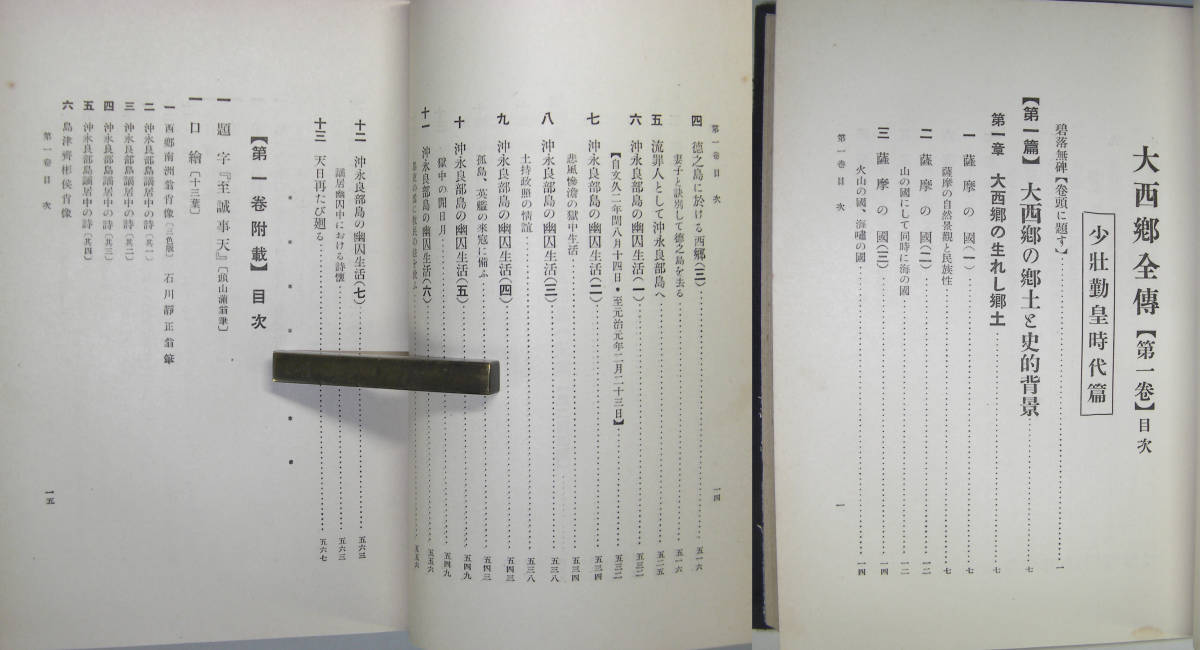 大西鄕全傳【第一卷】目次
少壯勤皇時代篇
碧落無碑【卷頭に題す】 一
【第一篇】 大西鄕の鄕土と史的背景 七
第一章 大西鄕の生れし鄕土 七
一 薩摩の國(一) 七
薩摩の自然景觀と民族性 七
二 薩摩の國(二) 一二
山の國にして同時に海の國 一二
三 薩摩の國(三) 一四
火山の國、海嘯の國 一四
第一卷目次 一
第一卷目次 一四
四 德之島に於ける西鄕(三) 五一六
妻子と訣別して德之島を去る 五一六
五 流罪人として沖永良部島へ 五二五
六 沖永良部島の幽囚生活(一) 五三二
【自文久二年閏八月十四日・至元治元年二月二十三日】 五三二
七 沖永良部島の幽囚生活(二) 五三四
悲風慘澹の獄中生活 五三四
八 沖永良部島の幽囚生活(三) 五三八
土持政照の情誼 五三八
九 沖永良部島の幽囚生活(四) 五四三
孤島、英艦の來寇に備ふ 五四三
十 沖永良部島の幽囚生活(五) 五四九
獄中の閑日月 五四九
十一 沖永良部島の幽囚生活(六) 五五六
五五六
十二 沖永良部島の幽囚生活(七) 五六三
謫居幽囚中における詩懷 五六三
十三 天日再たび廻る 五六七
【第一卷附載】目次
一 題字『至誠事天』〔頭山滿翁筆〕
一 口繪〔十三葉〕
一 西鄕南洲翁肖像〔三色版〕 石川靜正翁筆
二 沖永良部島謫居中の詩〔其一〕
三 沖永良部島謫居中の詩〔其二〕
四 沖永良部島謫居中の詩〔其三〕
五 沖永良部島謫居中の詩〔其四〕
六 島津齊彬侯肖像
第一卷目次 一五